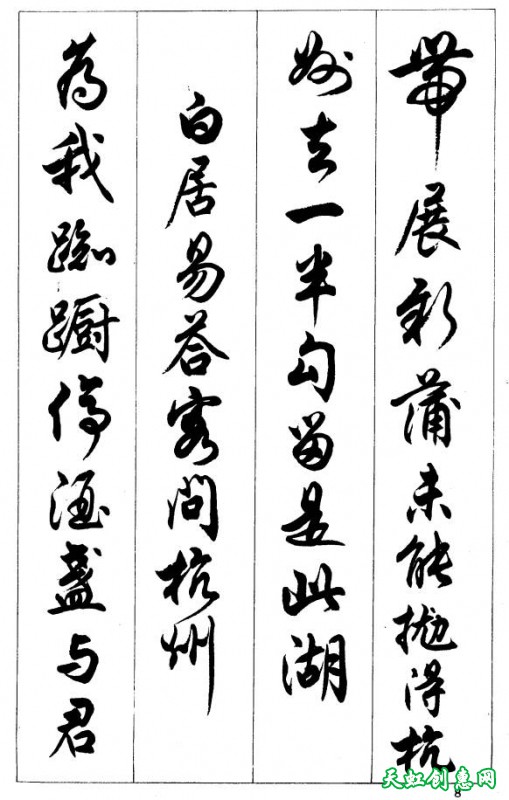 帶展新蒲未能抛得杭
州去一半勾留是此湖
白居易答客问杭州
為我踟蹰停酒盞与君
8
天虹创意网